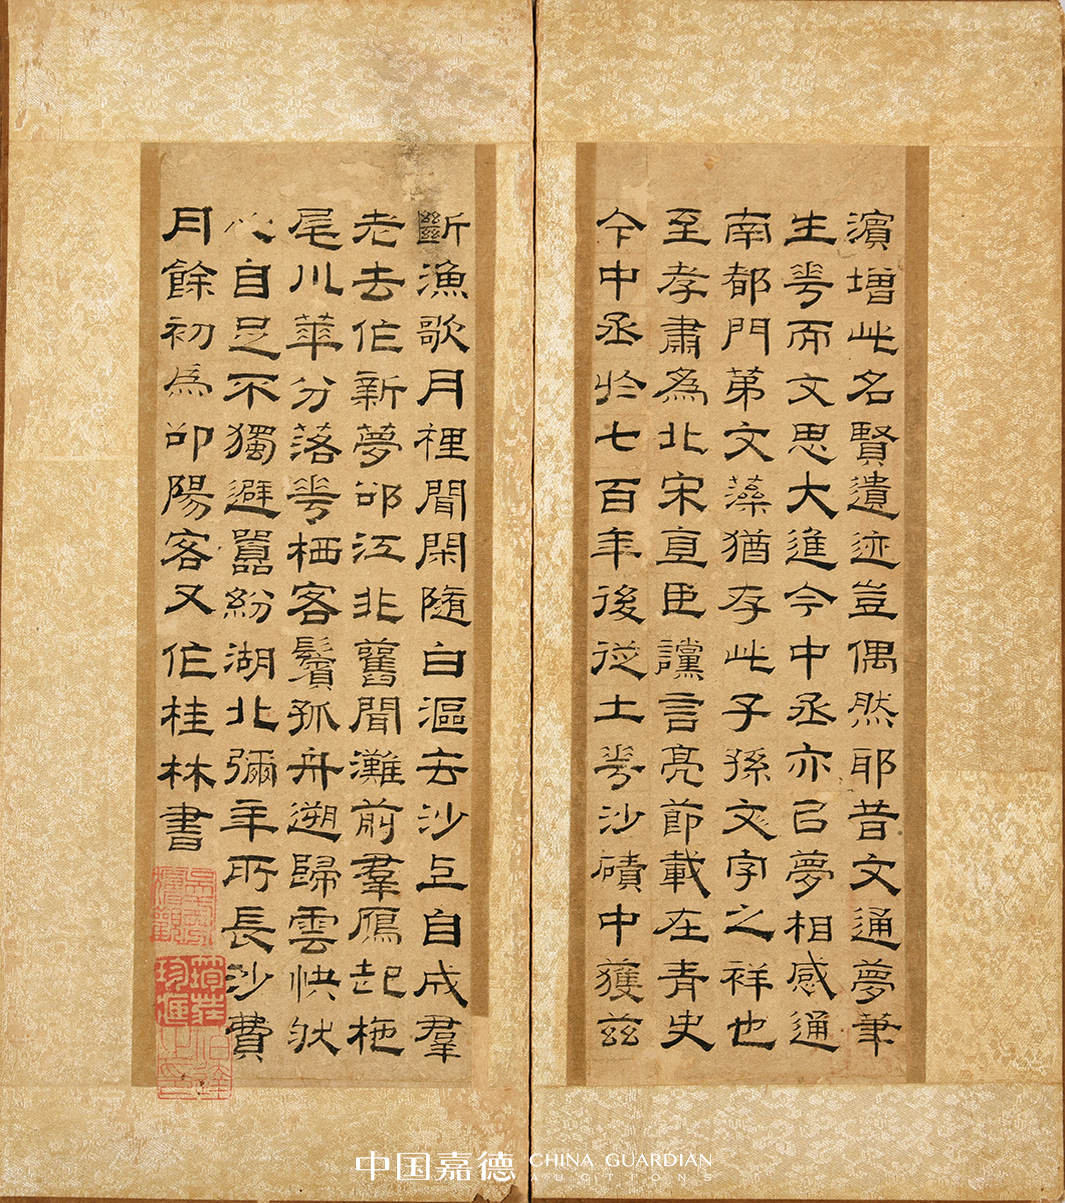 濱增此名賢遺迹豈偶然耶昔文通夢筆
生花而文思大進今中丞亦已夢相感通
南都門第文藻猶存此子孫文字之祥也
至孝肅為北宋直臣讜言亮節載在青史
今中丞於七百年後從土花沙磧中獲茲
斷漁歌月裡聞閑隨白漚去沙上自成羣
老去作新夢邵江非舊聞灘前羣雁起柂
尾川華分落花栖客鬢孤舟遡歸雲快狀
心自足不獨避囂紛湖北彌年所長沙費
月餘初為邵陽客又作桂林書
中国嘉德 CHINA GUARDIAN
AUCTIONS